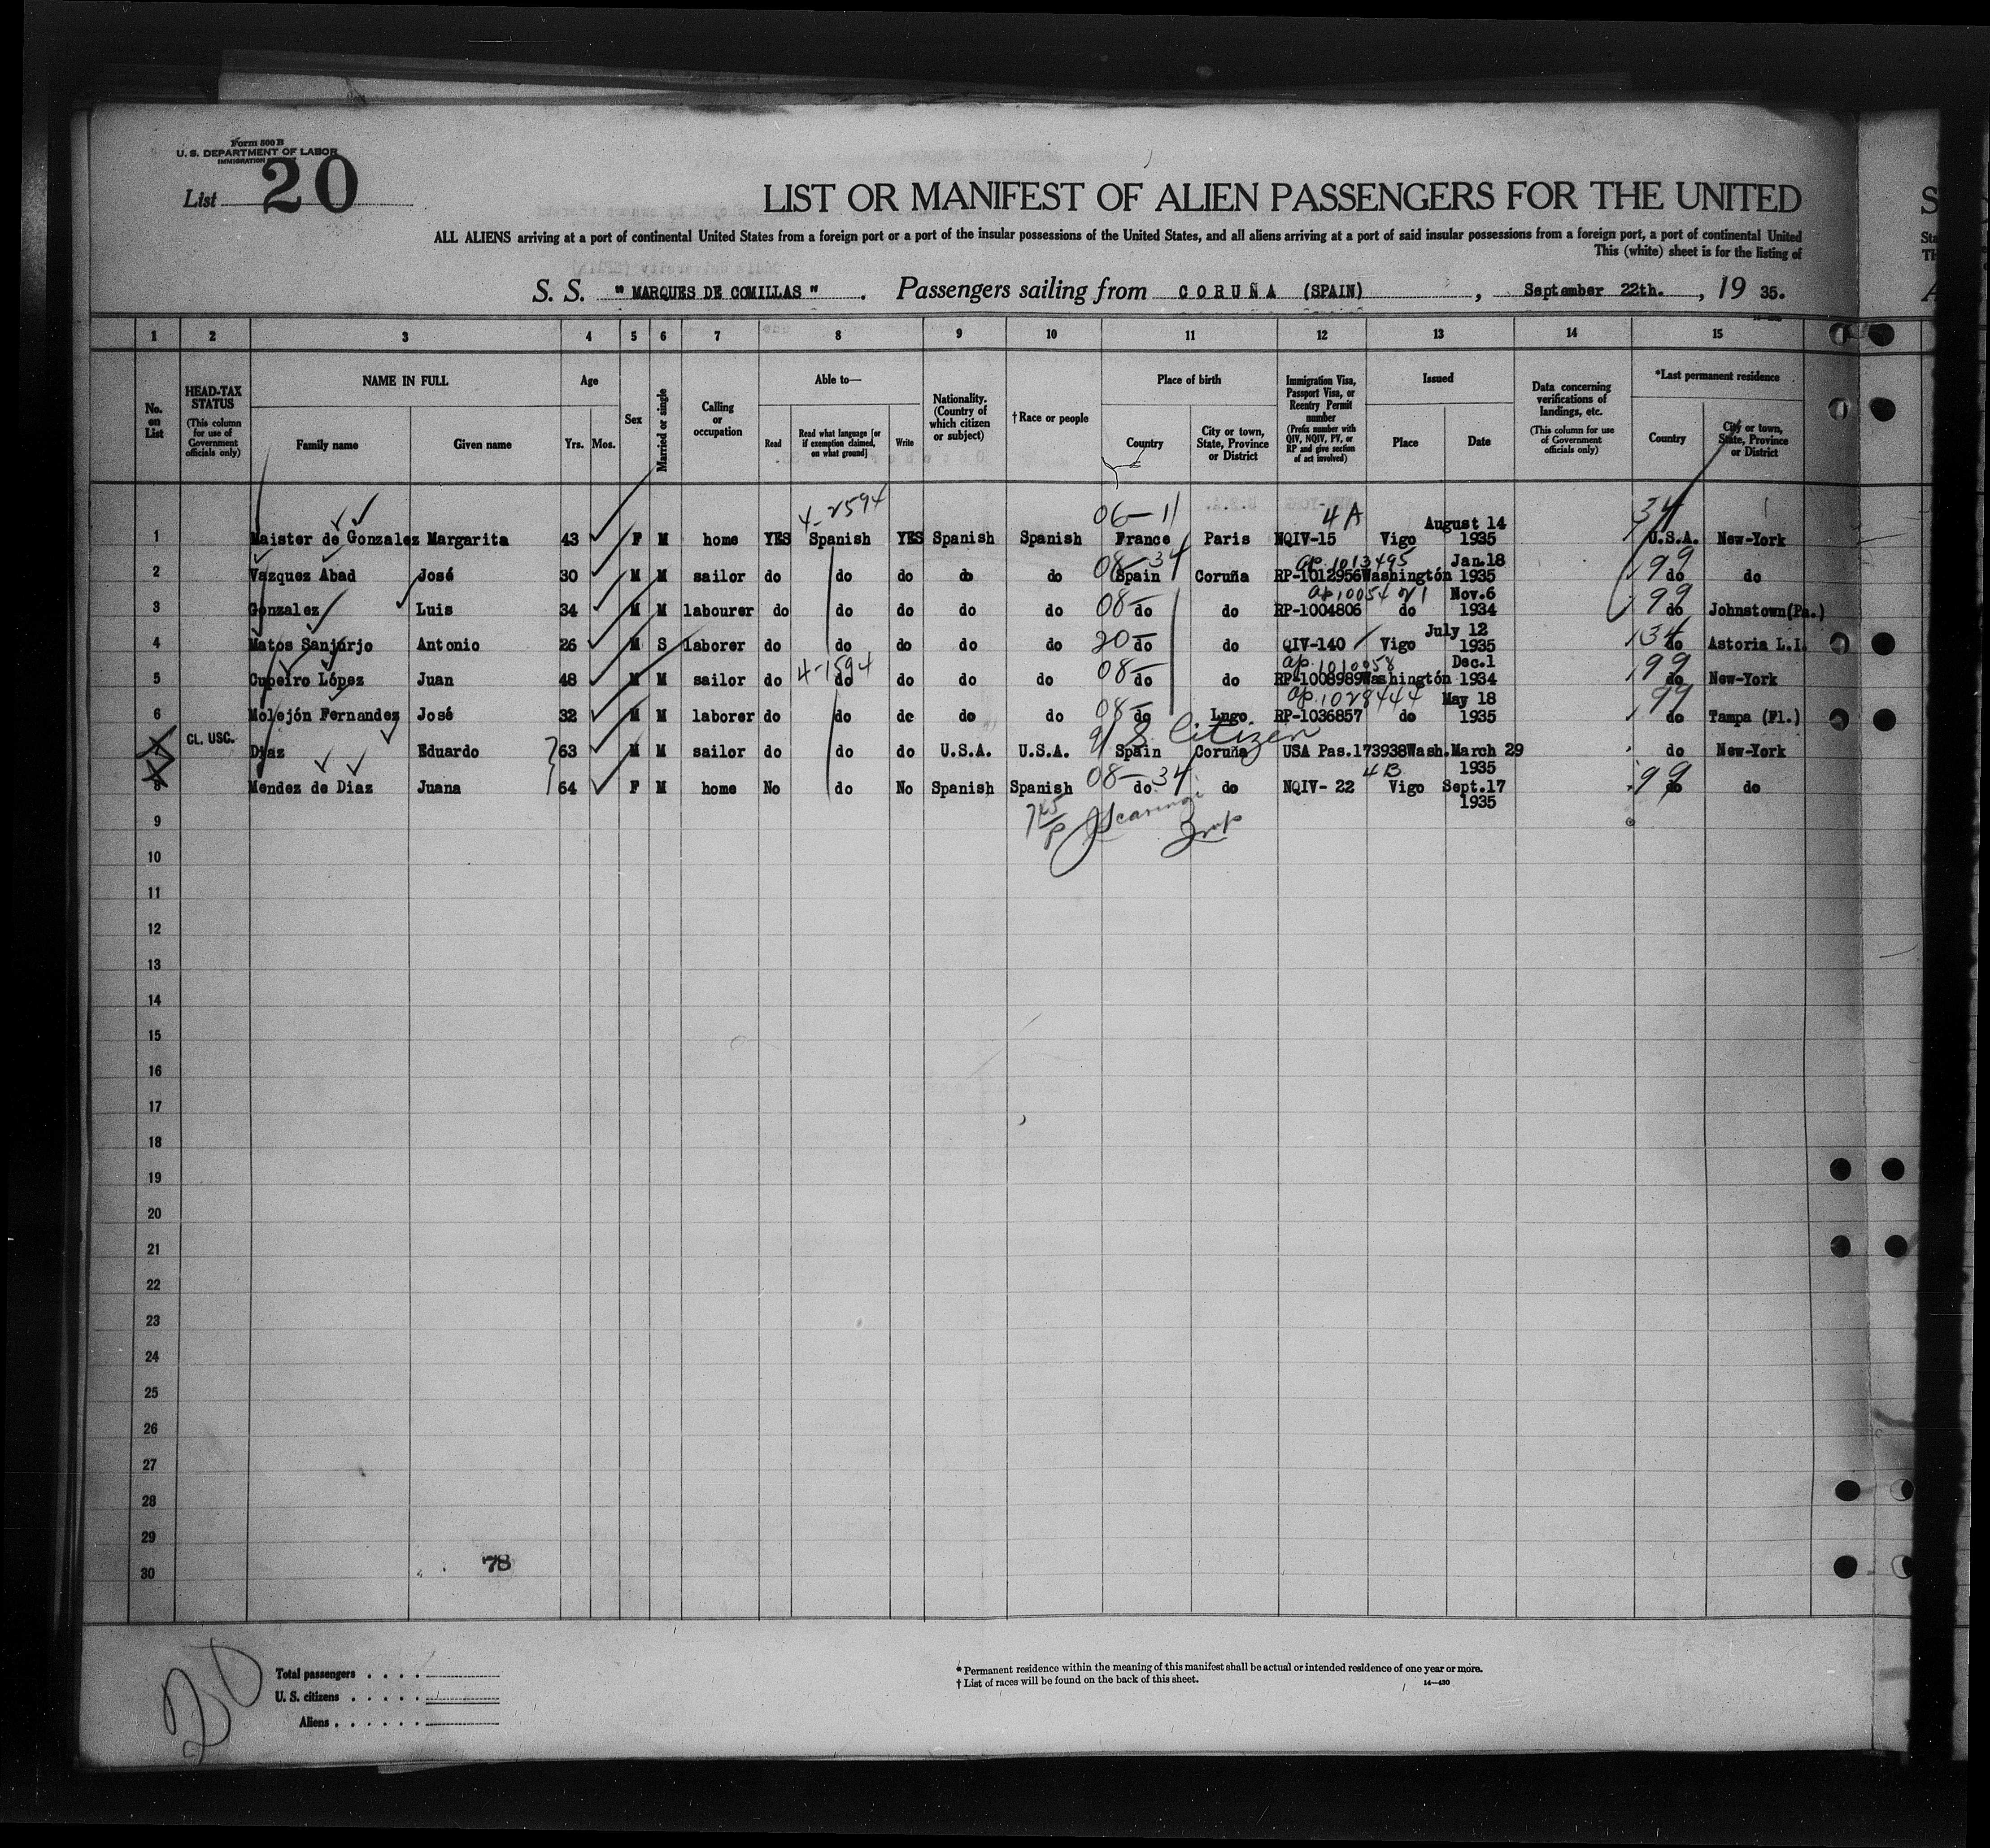 Form 500 B
U. S. DEPARTMENT OF LABOR
IMMIGRATION
List 20
LIST OR MANIFEST OF ALIEN PASSENGERS FOR THE UNITED
ALL ALIENS arriving at a port of continental United States from a foreign port or a port of the insular possessions of the United States, and all aliens arriving at a port of said insular possessions from a foreign port, a port of continental United
This (white) sheet is for the listing of
S. S. " MARQUES DE COMILLAS " . Passengers sailing from CORUÑA (SPAIN) , September 22th. , 19 35.
1 2 3 4 5 6 7 8 9 10 11 12 13 14 15
No. on List
HEAD-TAX STATUS
(This column for use of Government officials only)
NAME IN FULL
Family name Given name
Age
Yrs. Mos.
Sex
Married or single
Calling or occupation
Able to—
Read Read what language [or if exemption claimed, on what ground] Write
Nationality. (Country of which citizen or subject)
† Race or people
Place of birth
Country City or town, State, Province or District
Immigration Visa, Passport Visa, or Reentry Permit number
(Prefix number with QIV, NQIV, PV, or RP and give section of act involved)
Issued
Place Date
Data concerning verifications of landings, etc.
(This column for use of Government officials only)
*Last permanent residence
Country City or town, State, Province or District
4-2594 06-11 4A August 14 34
1 Maister de Gonzalez Margarita 43 F M home YES Spanish YES Spanish Spanish France Paris NQIV-15 Vigo 1935 U.S.A. New-York
08-34 ap.1013495 Jan.18 99
2 Vazquez Abad José 30 M M sailor do do do do do Spain Coruña RP-1012956 Washingtón 1935 do do
08- Nov.6 99
3 Gonzalez Luis 34 M M labourer do do do do do do do RP-1004806 do 1934 do Johnstown(Pa.)
20- July 12 34
4 Matos Sanjurjo Antonio 26 M S laborer do do do do do do do QIV-140 Vigo 1935 do Astoria L.I.
4-1594 08- ap.1010058 Dec.1 99
5 Cupeiro López Juan 48 M M sailor do do do do do do do RP-1008989 Washingtón 1934 do New-York
08- ap.1028444 May 18 99
6 Molejón Fernandez José 32 M M laborer do do do do do do Lugo RP-1036857 do 1935 do Tampa (Fl.)
CL. USC. U S Citizen
7 Diaz Eduardo 63 M M sailor do do do U.S.A. U.S.A. Spain Coruña USA Pas.173938 Wash. March 29 do New-York
1935
08-34 4B 99
8 Mendez de Diaz Juana 64 F M home No do No Spanish Spanish do do NQIV- 22 Vigo Sept.17 do do
1935
9
10
11
12
13
14
15
16
17
18
19
20
21
22
23
24
25
26
27
28
29
78
30
20
Total passengers
U. S. citizens
Aliens
* Permanent residence within the meaning of this manifest shall be actual or intended residence of one year or more.
† List of races will be found on the back of this sheet.
14—430